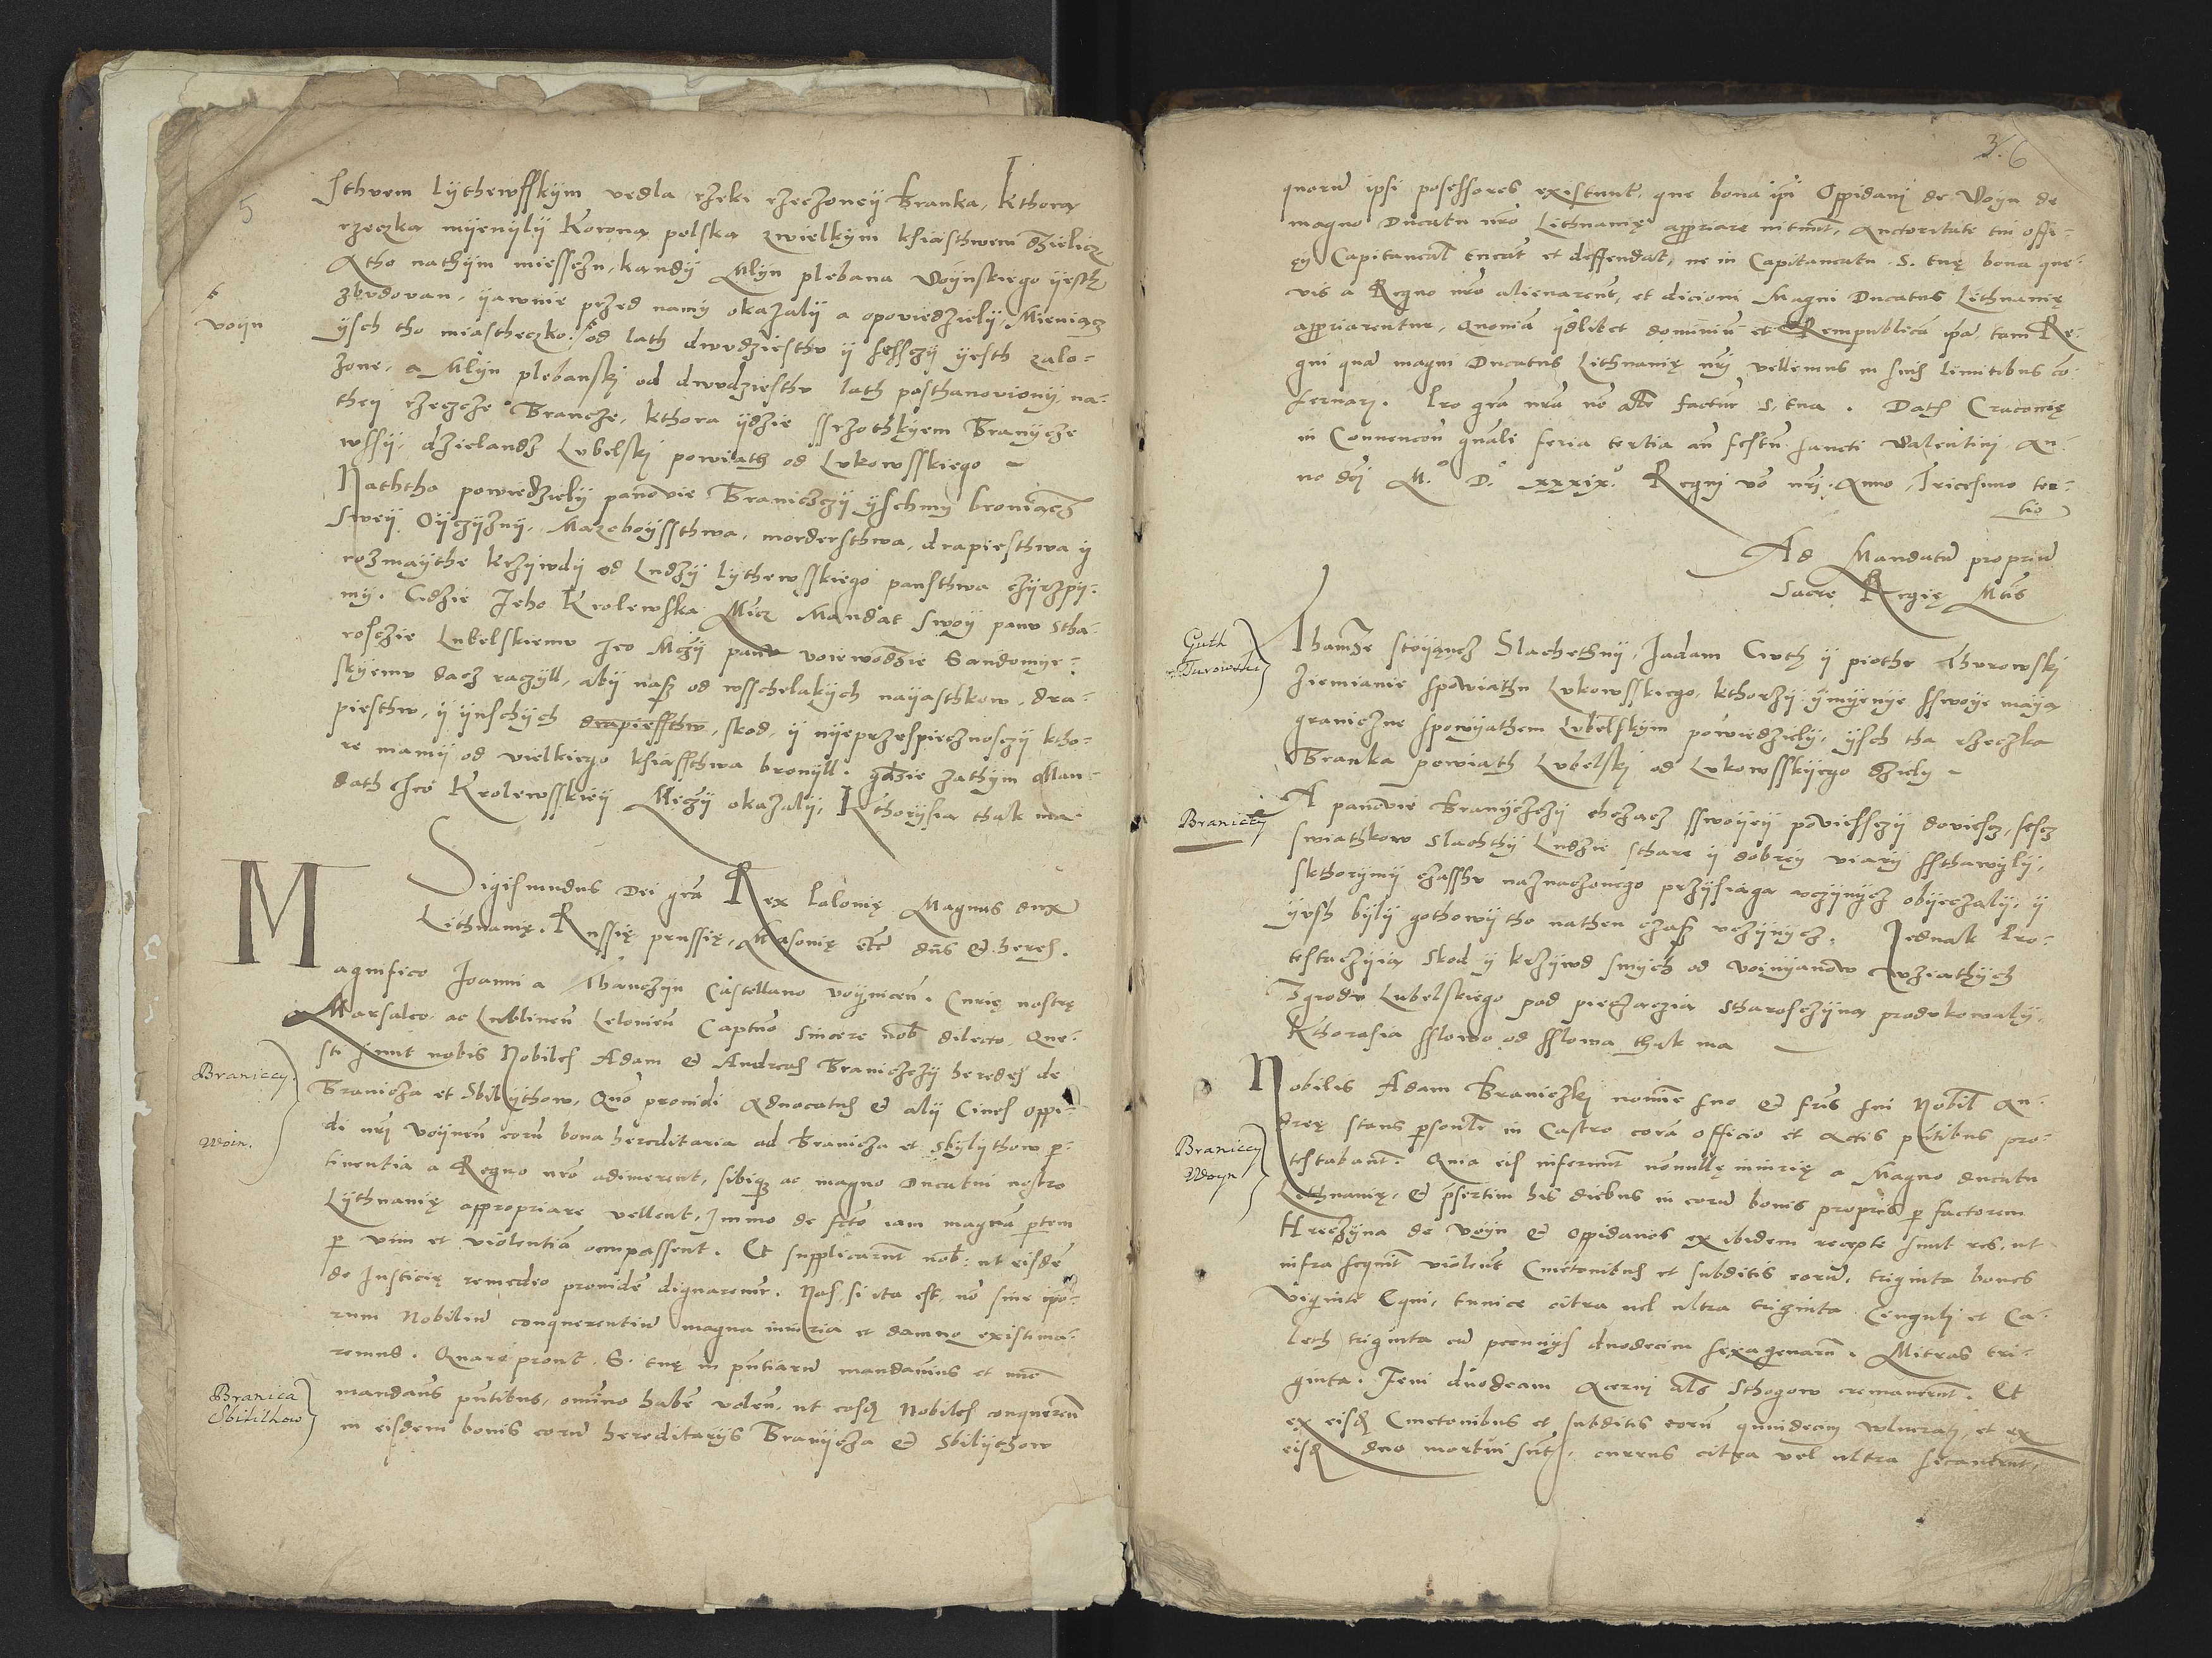 5
sthvem lÿthewsskÿm vedla rzeki rzeczoneÿ Branka, kthora
rzeczka mÿenÿlÿ Korona polska zwielkÿm ksiasthwem dzielicz
A tho nathÿm miesscznu, kandÿ Mlÿn plebana voÿnskiego ÿesth
zbvdovan, ÿawnie przed namÿ okazalÿ a opoviedzielÿ, Mieniacz
voÿn
ÿsch tho miastheczko od lath dwvdziesthv ÿ sessczÿ ÿesth zalo-
zone, a Mlÿn plebanski od dwvdziesthv lath posthanovionÿ na-
theÿ rzeczcze Brancze, kthora ÿdzie ssrzothkÿem Branÿcze
wssÿ, dzielandz Lvbelskj powiath od Lvkowsskiego
Naththo powiedzielÿ panovie Braniczczÿ ÿschmÿ broniacz
sweÿ Oÿczÿznÿ, Mazoboÿssthwa, mordersthwa, drapiesthwa ÿ
rozmaÿthe krzÿwdÿ od Ludzÿ lÿthewsskiego pansthwa czÿrzpÿ-
mÿ. Gdzie Jeho Krolewska Mücz Mandat swoÿ panv stha-
rosczie Lubelskiemv Jeo Mczÿ panv voiewodzie Sandomÿe-
skÿemv dacz raczÿll, abÿ nasz od wsschelakÿch naÿasthkow, dra-
piesthw, ÿ ÿnschÿch drapiessthw, skod, ÿ nÿeprzespiecznosczÿ ktho-
re mamÿ od vielkiego ksiassthwa bronÿll. gdzie zathÿm Man-
dath Jeo Krolewsskieÿ Mczÿ okazalÿ, Kthorÿsia thak ma
Sigismundus Dei gra Rex Polonię Magnus dux
Lithuanię, Russię prussię, Masouię etc dns & heres.
Magnifico Joanni a Thanczÿn Castellano voÿnicen. Curię nostrę
Marsalco, ac Lublinen Leloviēn Captno sincere nob dilecto. Que-
sti sunt nobis Nobiles Adam & Andreas Braniczczÿ heredes de
Braniccy.
Branicza et Sbilÿthow, Quo prouidi Aduocatus & alÿ Ciues oppi-
di nrj voÿnen eoru bona hereditaria ad Branicza et Sbÿlÿthow p-
Woin.
tinentia a Regno nro adimerent, sibiqz ac magno Ducatui nostro
Lÿthuanię appropriare vellent, Jmmo de fcto iam magna ptem
p vim et violentiā occupassent. Et supplicarunt nob: ut eisde
de Justicię remedio prouide dignaremr. Nos, si ita est, no sine ipo-
rum Nobiliu conquerentiu magna iniuria et damno existima-
remus. Quare prout S. tuę in pntiaru mandauimus et nuc
mandams pntibus, omino habe volen, ut eosd Nobiles conqueren
Branica
Sbilithow
in eisdem bonis eoru hereditarÿs Branÿcza & Sbilÿthow
3. 6
quoru ipsi possessores existunt, que bona ipi Oppidani de Voÿn de
magno Ducatu nro Lithuanię appriare nitunt, Auctoritate tui offi-
cÿ Capitaneal tueat et deffendat, ne in Capitaneatu S. tuę bona que-
vis a Regno nro alienarent, et dicioni Magni Ducatus Lithuanię
appriarentur, Quoniā qdlibet dominiu et Rempublicā ipā, tam Re-
gni quā magni Ducatus Lithuanię nrj vellemus in suis limitibus co-
seruarj. Pro gra nra no aliter factur S. tua. Datf Cracouię
in Conuencon gnali feria tertia an festu sancti Valentini An-
no dnj M° D° xxxix° Regni vo nri Anno Tricesimo ter-
tio
Ad Mandatu propriu
Sacre Regię Mtis
Guth
Turowski
Thamze stoÿancz Slachethnÿ, Jadam Guth ÿ piothr Thvrowskj
ziemianie spowiathu Lvkowsskiego, kthorzÿ ÿmÿenÿe sswoÿe maÿa
graniczne spowÿathem Lvbelskÿm powiedzielÿ, ÿsch tha rzeczka
Branka powiath Lvbelskj od Lvkowsskÿego dzielÿ
Braniccy
A panovie Branÿczczÿ chczacz sswoÿeÿ poviessczÿ doviescz, sescz
swiathkow Slachthÿ Ludzie sthare ÿ dobreÿ viarÿ ssthawÿlÿ,
skthorÿmÿ czasshv naznaczonego przÿsiaga vczÿnÿcz obÿeczalÿ, ÿ
ÿvsh bÿlÿ gothowÿ tho nathen czasz vczÿnÿcz. Jednak Pro-
testaczÿia Skod ÿ krzÿwd smÿch od voÿnÿanow wziathÿch
Zgrodv Lubelskiego pod pieczaczia Stharosczÿna produkowalÿ.
Kthorasia sslowo od sslowa thak ma
Nobilis Adam Braniczkj nomie suo & fris sui Nobil An-
dreę stans psonli in Castro corā officio et Actis pntibus pro-
Braniccy
Woyn
testabant. Quia eis inferunt nonnullę iniurię a Magno ducatu
Lithuanię, & psertim his diebus in eoru bonis proprijs p factorem
Hreczÿna de Voÿn & oppidanos ex ibidem recepte sunt res, ut
infra sequit violent Cmetonibus et subditis eoru, triginta boues
Viginti Equi, tunice citra uel ultra triginta Cinguli et Ca-
lech triginta cu pecunÿs duodecim sexagenaru. Mitras tri-
ginta. Feni duodecim Acerui als Sthogow cremauerunt. Et
ex eisd Cmetonibus et subditis eoru quindecim vulnerati, et ex
eisd duo mortui sunt, currus citra vel ultra secauerunt,